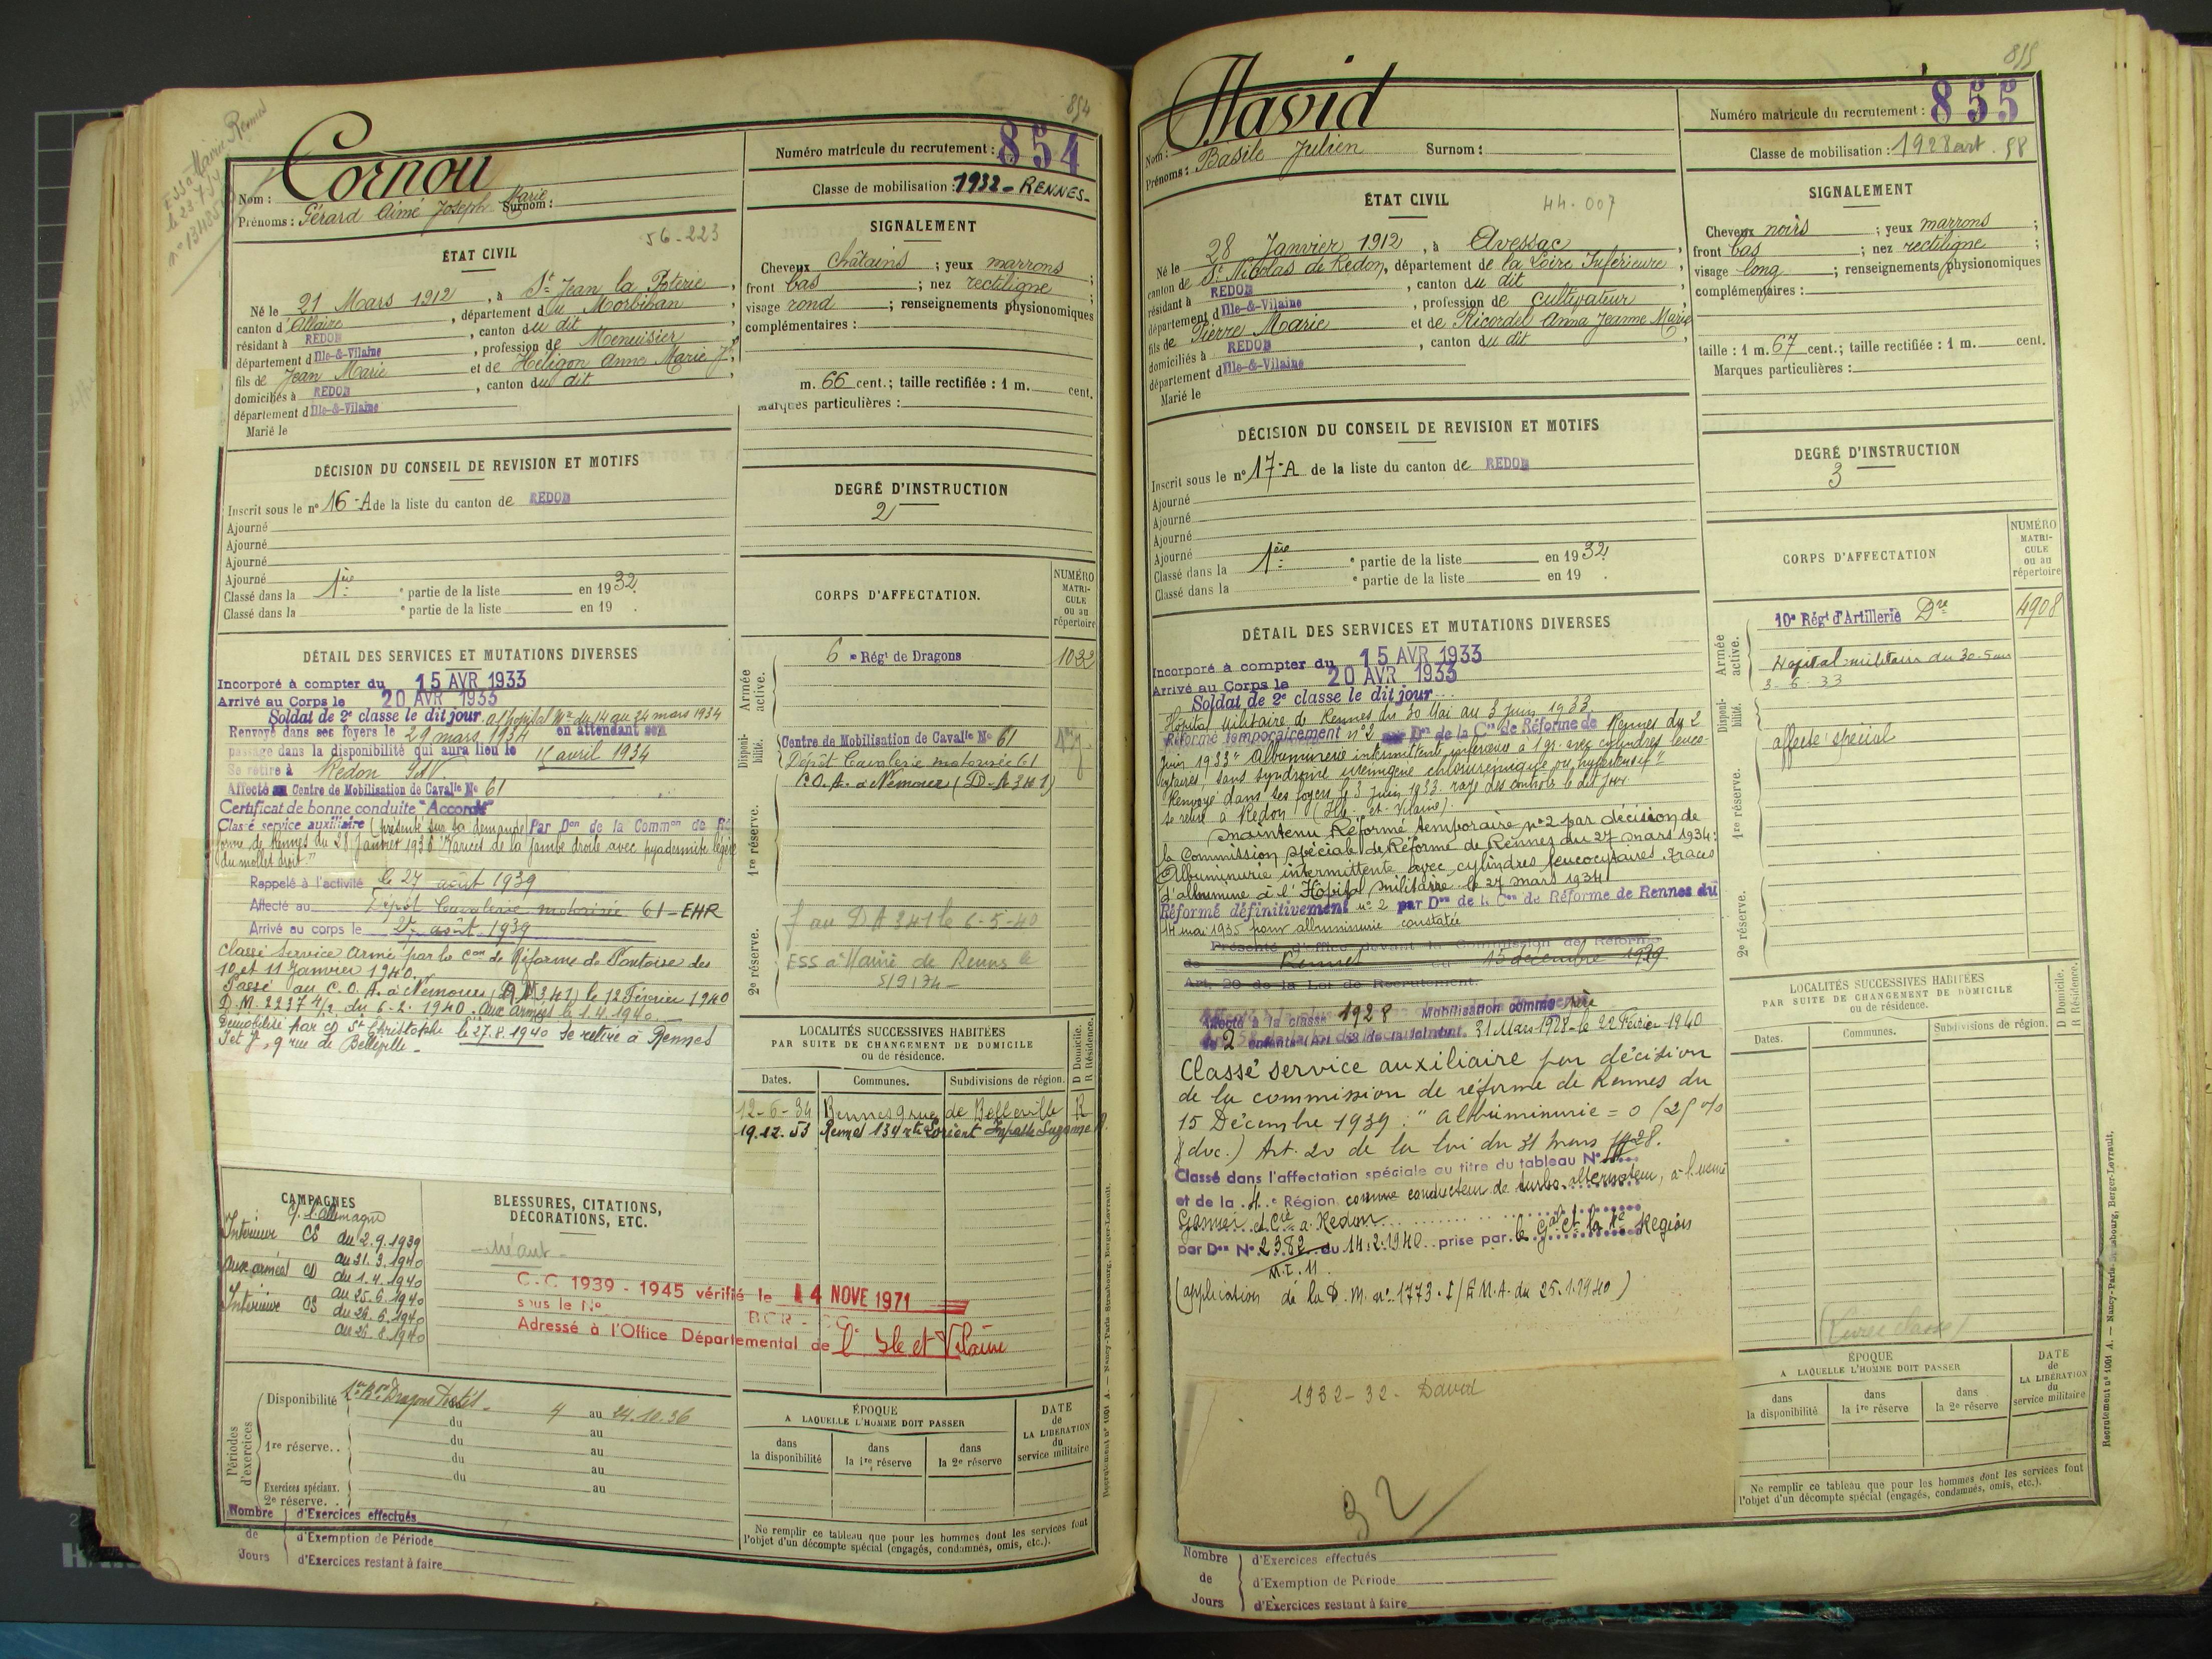 854
Cornou
Nom :
Prénoms : Gérard Aimé Joseph Marie Surnom :
Numéro matricule du recrutement : 854
Classe de mobilisation : 1932 - RENNES -
ÉTAT CIVIL
56-223
Né le 21 Mars 1912, à St Jean la Poterie,
canton d'Allaire, département du Morbihan,
résidant à REDON, canton du dit,
département d'Ille-&-Vilaine, profession de Menuisier
fils de Jean Marie et de Héligon Anne Marie Jh,
domiciliés à REDON, canton du dit,
département d'Ille-&-Vilaine
Marié le
SIGNALEMENT
Cheveux châtains ; yeux marrons ;
front bas ; nez rectiligne ;
visage rond ; renseignements physionomiques
complémentaires :
m. 66 cent. ; taille rectifiée : 1 m. cent.
Marques particulières :
DÉCISION DU CONSEIL DE REVISION ET MOTIFS
Inscrit sous le n° 16-A de la liste du canton de REDON
Ajourné
Ajourné
Ajourné
Ajourné
Classé dans la 1ère partie de la liste en 1932.
Classé dans la e partie de la liste en 19 .
DEGRÉ D'INSTRUCTION
2
DÉTAIL DES SERVICES ET MUTATIONS DIVERSES
Incorporé à compter du 15 AVR 1933
Arrivé au Corps le 20 AVR 1933
Soldat de 2e classe le dit jour. a l'hôpital Mre du 14 au 24 mars 1934
Renvoyé dans ses foyers le 29 mars 1934 en attendant son
passage dans la disponibilité qui aura lieu le 15 avril 1934
Se retire à Redon I&V.
Affecté au Centre de Mobilisation de Cavalle No 61
Certificat de bonne conduite "Accordé"
Classé service auxiliaire (présenté sur sa demande) Par Don de la Common de Ré
forme de Rennes du 28 Janvier 1938 "Varices de la jambe droite avec pyodermite légère
du mollet droit."
Rappelé à l'activité le 27 août 1939
Affecté au Dépôt Cavalerie motorisée 61 - EHR
Arrivé au corps le 27 août 1939
Classé Service Armé par la Con de Réforme de Pontoise des
10 et 11 Janvier 1940.
Passé au C.O.A. à Nemours (D.A 341) le 12 Février 1940
D.M. 2237 4/2 du 6-2-1940. Aux armées le 1.4.1940.
Démobilisé par CD St Christophe le 27.8.1940 se retire à Rennes
I et V, 9 rue de Belleville -
CORPS D'AFFECTATION.
NUMÉRO MATRI-CULE ou au répertoire
Armée active.
6e Régt de Dragons 1032
Disponi-bilité.
Centre de Mobilisation de Cavalle No 61
Dépôt Cavalerie motorisée 61
C.O.A. à Nemours (D.A 341)
1re réserve.
2e réserve.
f au DA 341 le 6-5-40
ESS à Mairie de Rennes le
5/9/74 -
LOCALITÉS SUCCESSIVES HABITÉES
PAR SUITE DE CHANGEMENT DE DOMICILE
ou de résidence.
D Domicile. R Résidence.
Dates. Communes. Subdivisions de région.
12-6-34 Rennes 9 rue de Belleville R
19.12.53 Rennes 134 rte Lorient Impasse Suzanne R.
CAMPAGNES
C/ l'Allemagne
Intérieur CS du 2.9.1939
au 31.3.1940
aux armées CD du 1.4.1940
au 25.6.1940
Intérieur CS du 26.6.1940
au 26.8.1940
BLESSURES, CITATIONS,
DÉCORATIONS, ETC.
- Néant -
C.C. 1939 - 1945 vérifié le 14 NOVE 1971
sous le No BCR - CC
Adressé à l'Office Départemental de l'Ille et Vilaine
Périodes d'exercices
Disponibilité du 4 au 24.10.36
1re réserve.. du au
du au
du au
Exercices spéciaux. du au
2e réserve. . .
Nombre de Jours
d'Exercices effectués
d'Exemption de Période
d'Exercices restant à faire
ÉPOQUE
A LAQUELLE L'HOMME DOIT PASSER
dans la disponibilité
dans la 1re réserve
dans la 2e réserve
DATE de LA LIBÉRATION du service militaire
Ne remplir ce tableau que pour les hommes dont les services font
l'objet d'un décompte spécial (engagés, condamnés, omis, etc.).
855
David
Nom :
Prénoms : Basile Julien Surnom :
Numéro matricule du recrutement : 855
Classe de mobilisation : 1928 art. 58
ÉTAT CIVIL
44-007
Né le 28 Janvier 1912, à Avessac,
canton de St Nicolas de Redon, département de la Loire Inférieure,
résidant à REDON, canton du dit,
département d'Ille-&-Vilaine, profession de cultivateur,
fils de Pierre Marie et de Ricordel Anna Jeanne Marie
domiciliés à REDON, canton du dit,
département d'Ille-&-Vilaine
Marié le
SIGNALEMENT
Cheveux noirs ; yeux marrons ;
front bas ; nez rectiligne ;
visage long ; renseignements physionomiques
complémentaires :
taille : 1 m. 67 cent. ; taille rectifiée : 1 m. cent.
Marques particulières :
DÉCISION DU CONSEIL DE REVISION ET MOTIFS
Inscrit sous le n° 17-A de la liste du canton de REDON
Ajourné
Ajourné
Ajourné
Ajourné
Classé dans la 1ère e partie de la liste en 1932.
Classé dans la e partie de la liste en 19 .
DEGRÉ D'INSTRUCTION
3
DÉTAIL DES SERVICES ET MUTATIONS DIVERSES
Incorporé à compter du 15 AVR 1933
Arrivé au Corps le 20 AVR 1933
Soldat de 2e classe le dit jour.
Hôpital Militaire de Rennes du 30 Mai au 3 juin 1933.
Réformé temporairement n°2 par Don de la Con de Réforme de Rennes du 2
Juin 1933 "Albuminurie intermittente inférieure à 1 gr. avec cylindres leuco-
cytaires, sans syndrome urémigène chlorurémique ou hypertensif"
Renvoyé dans ses foyers le 3 juin 1933. rayé des contrôles le dit jour.
Se retire à Redon (Ille-et-Vilaine).
Maintenu Réformé temporaire n°2 par décision de
la Commission spéciale de Réforme de Rennes du 27 mars 1934 :
Albuminurie intermittente avec cylindres leucocytaires. Traces
d'albumine à l'Hôpital militaire le 27 mars 1934
Réformé définitivement n°2 par Don de la Con de Réforme de Rennes du
14 mai 1935 pour albuminurie constatée
Présenté d'office devant la Commission de Réforme
de Rennes du 15 décembre 1939
Art. 20 de la Loi de Recrutement.
Affecté à la classe 1928 Mobilisation comme père
de 2 enfants (Art. 58 de la loi du 31 Mars 1928 - le 22 Février 1940
Classé service auxiliaire par décision
de la commission de réforme de Rennes du
15 Décembre 1939 : "albuminurie = 0 (25 %
(duc.) Art. 20 de la loi du 31 mars 1928.
Classé dans l'affectation spéciale au titre du tableau No
et de la 4e Région, comme conducteur de turbo-alternateur, à l'usine
Garnier et Cie à Redon
par Don No 2382 du 14.2.1940 prise par le Gal Ct la 4e Région
M.I. 11.
(application de la D.M. n° 1773.I/E.M.A. du 25.1.1940)
1932-32- David
32
CORPS D'AFFECTATION
NUMÉRO MATRI-CULE ou au répertoire
Armée active.
10e Régt d'Artillerie Dre 4908
Hopital militaire du 30.5 au
3-6-33
Disponi-bilité.
affecté spécial
1re réserve.
2e réserve.
LOCALITÉS SUCCESSIVES HABITÉES
PAR SUITE DE CHANGEMENT DE DOMICILE
ou de résidence.
D Domicile. R Résidence.
Dates. Communes. Subdivisions de région.
ÉPOQUE
A LAQUELLE L'HOMME DOIT PASSER
dans la disponibilité
dans la 1re réserve
dans la 2e réserve
DATE de LA LIBÉRATION du service militaire
Ne remplir ce tableau que pour les hommes dont les services font
l'objet d'un décompte spécial (engagés, condamnés, omis, etc.).
Nombre de Jours
d'Exercices effectués
d'Exemption de Période
d'Exercices restant à faire
Recrutement n° 1001 A. — Nancy-Paris-Strasbourg, Berger-Levrault.